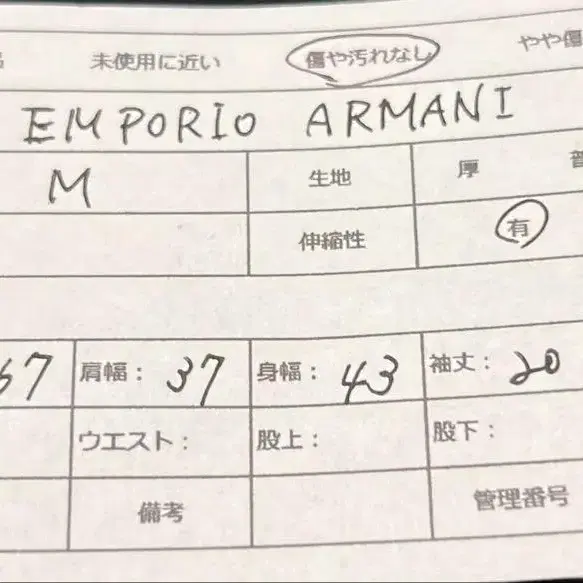 未使用に近い 傷や汚れなし やや傷
EMPORIO ARMANI
M 生地 厚 普
伸縮性 有
67 肩幅： 37 身幅： 43 袖丈： 20
ウエスト： 股上： 股下：
備考 管理番号